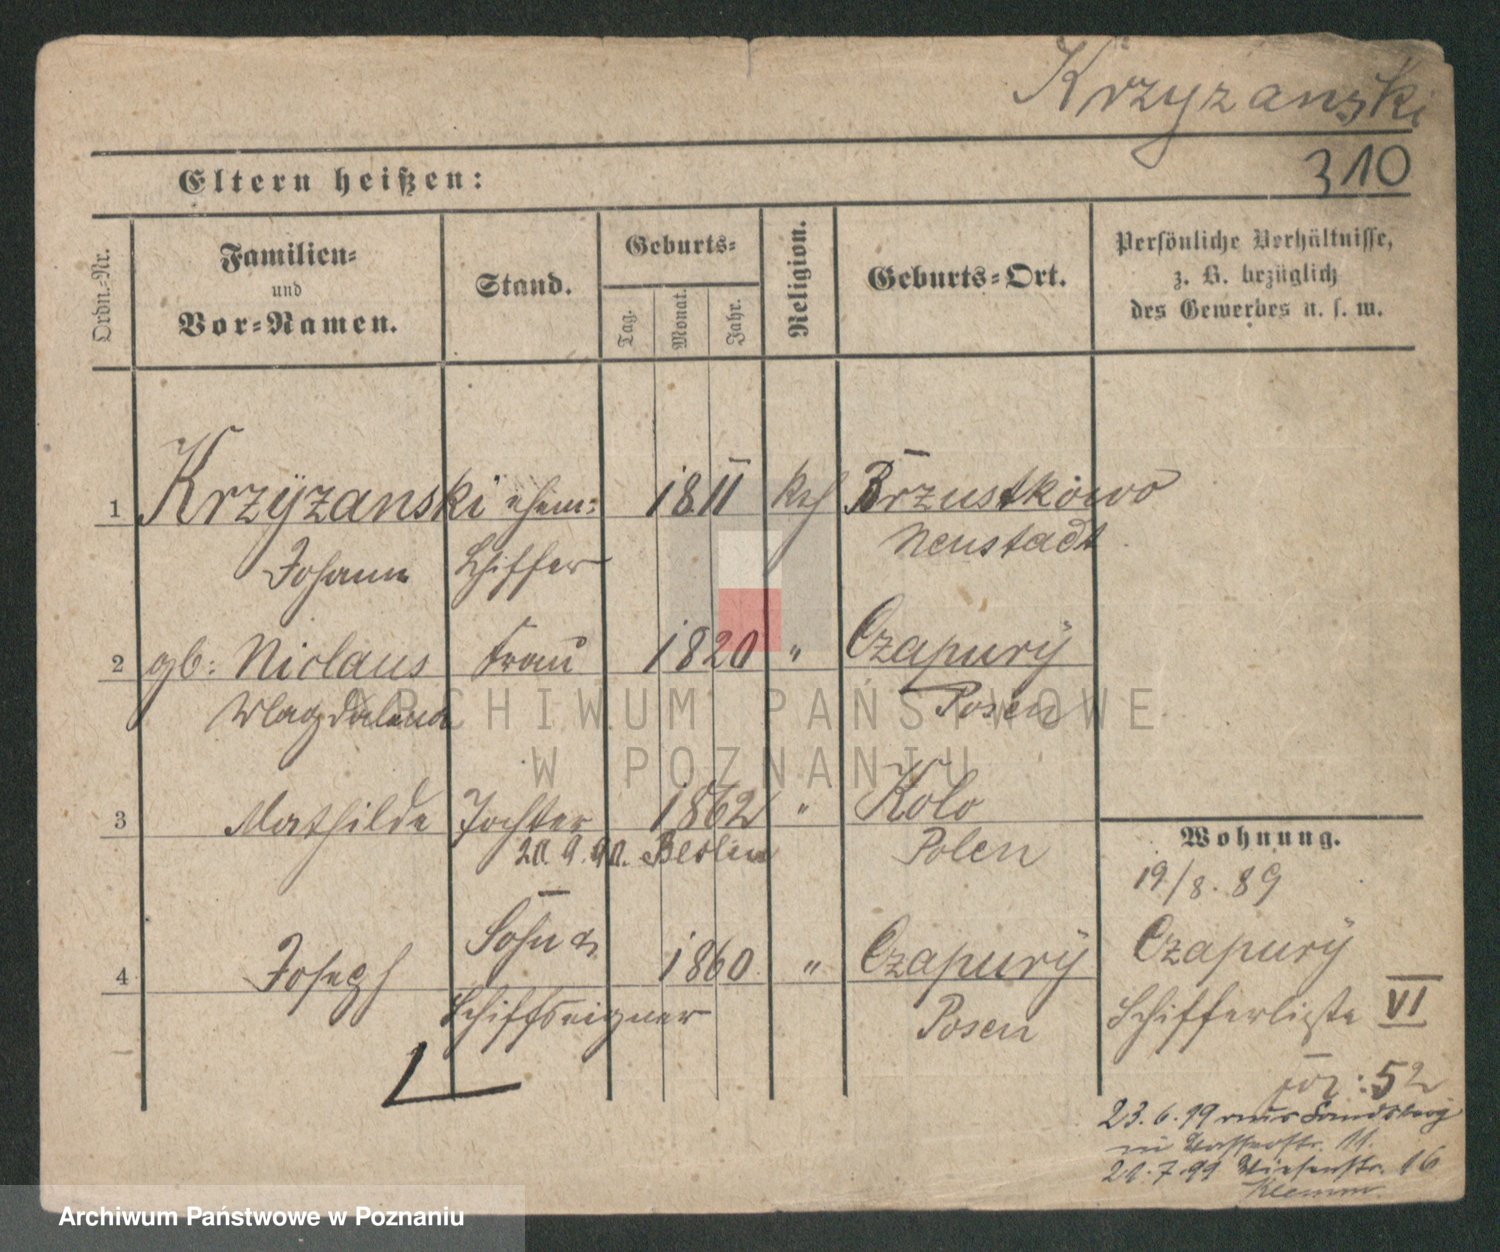 Krzyzanski
310
Eltern heißen:
Ordn.-Nr.
Familien-
und
Vor-Namen.
Stand.
Geburts-
Tag.
Monat.
Jahr.
Religion.
Geburts-Ort.
Persönliche Verhältnisse,
z. B. bezüglich
des Gewerbes u. s. w.
1 Krzÿzanski ehem: 1811 kth Brzustkowo
Neustadt
Johann Schiffer
2 gb: Niclaus Frau 1820 " Czapurÿ
Magdalena Posen
3 Mathilde Tochter 1862 " Kolo
20.9.90. Berlin Polen
4 Joseph Sohn 1860 " Czapurÿ
Schiffseigner Posen
Wohnung.
19/8.89
Czapurÿ
Schifferliste VI
52
23.6.99 aus Landsberg
11.
21.7.99 16
Klemm
ARCHIWUM PAŃSTWOWE
W POZNANIU
Archiwum Państwowe w Poznaniu